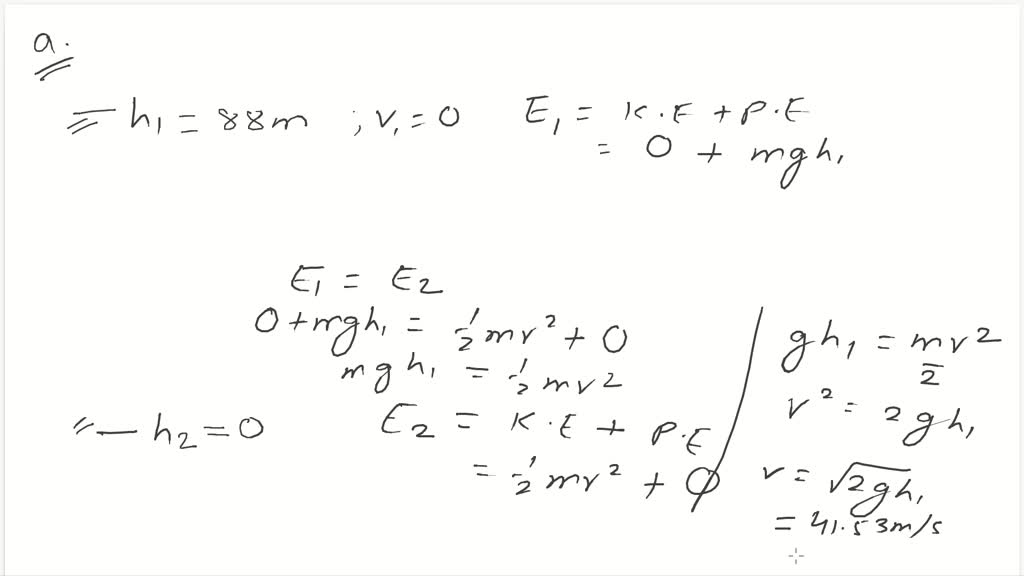 a.
h₁ = 88m ; v₁ = 0 E₁ = K.E + P.E
= 0 + mgh₁
E₁ = E₂
0 + mgh₁ = ½mv² + 0
mgh₁ = ½mv²
h₂ = 0 E₂ = K.E + P.E
= ½mv² + 0
gh₁ = mv²/2
v² = 2gh₁
v = √2gh₁
= 41.53m/s